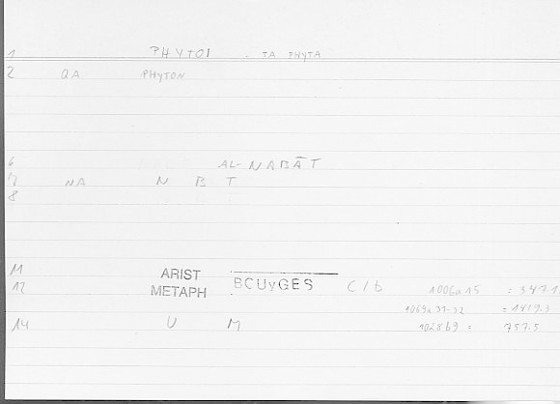 1 PHYTOI - TA PHYTA
2 QA PHYTON
6 AL-NABĀT
7 NA N B T
8
11 ARIST
12 METAPH BCUyGES C/b 1006a15 = 347.1
1069a31-32 = 1419.3
14 U M 1028b9 = 757.5